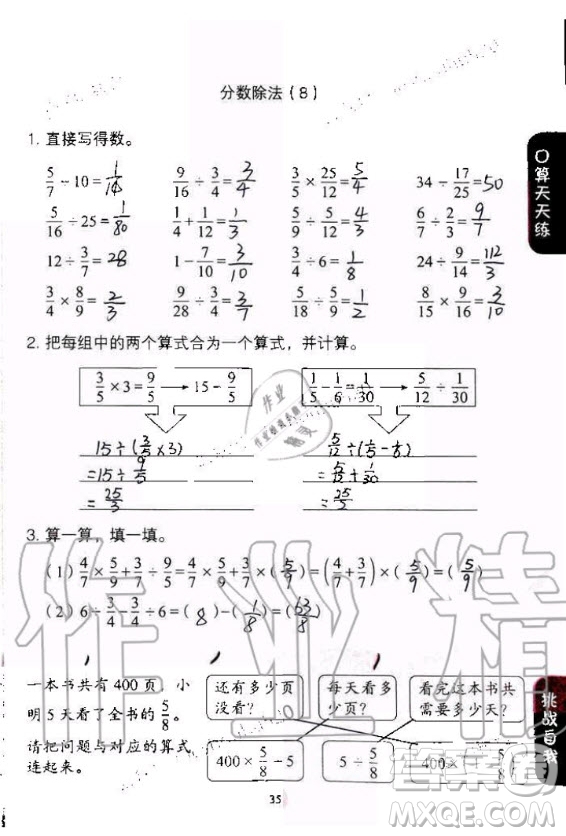 分数除法（8）
1. 直接写得数。
5/7÷10=1/14 9/16÷3/4=3/4 3/5×25/12=5/4 34÷17/25=50
5/16÷25=1/80 1/4+1/12=1/3 5/9÷5/12=4/3 6/7÷2/3=9/7
12÷3/7=28 1-7/10=3/10 3/4÷6=1/8 24÷9/14=112/3
3/4×8/9=2/3 9/28÷3/4=3/7 5/18÷5/9=1/2 8/15×9/16=3/10
2. 把每组中的两个算式合为一个算式，并计算。
3/5×3=9/5 → 15-9/5 1/5-1/6=1/30 → 5/12÷1/30
15÷(3/5×3) 5/12÷(1/5-1/6)
=15÷9/5 =5/12÷1/30
=25/3 =25/2
3. 算一算，填一填。
（1）4/7×5/9+3/7÷9/5=4/7×5/9+3/7×(5/9)=(4/7+3/7)×(5/9)=(5/9)
（2）6÷3/4-3/4÷6=(8)-(1/8)=(63/8)
一本书共有 400 页，小明 5 天看了全书的5/8。
请把问题与对应的算式连起来。
还有多少页没看？ 每天看多少页？ 看完这本书共需要多少天？
400×5/8÷5 5÷5/8 400×
35
算天天练
挑战自我
作业精灵
MXQE.COM